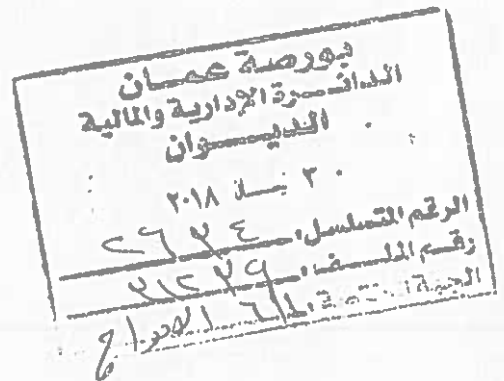 بورصة عمان
الدائرة الإدارية والمالية
الديوان
٣٠ نيسان ٢٠١٨
الرقم المتسلسل:
رقم الملف:
الجهة المختصة: الإدراج